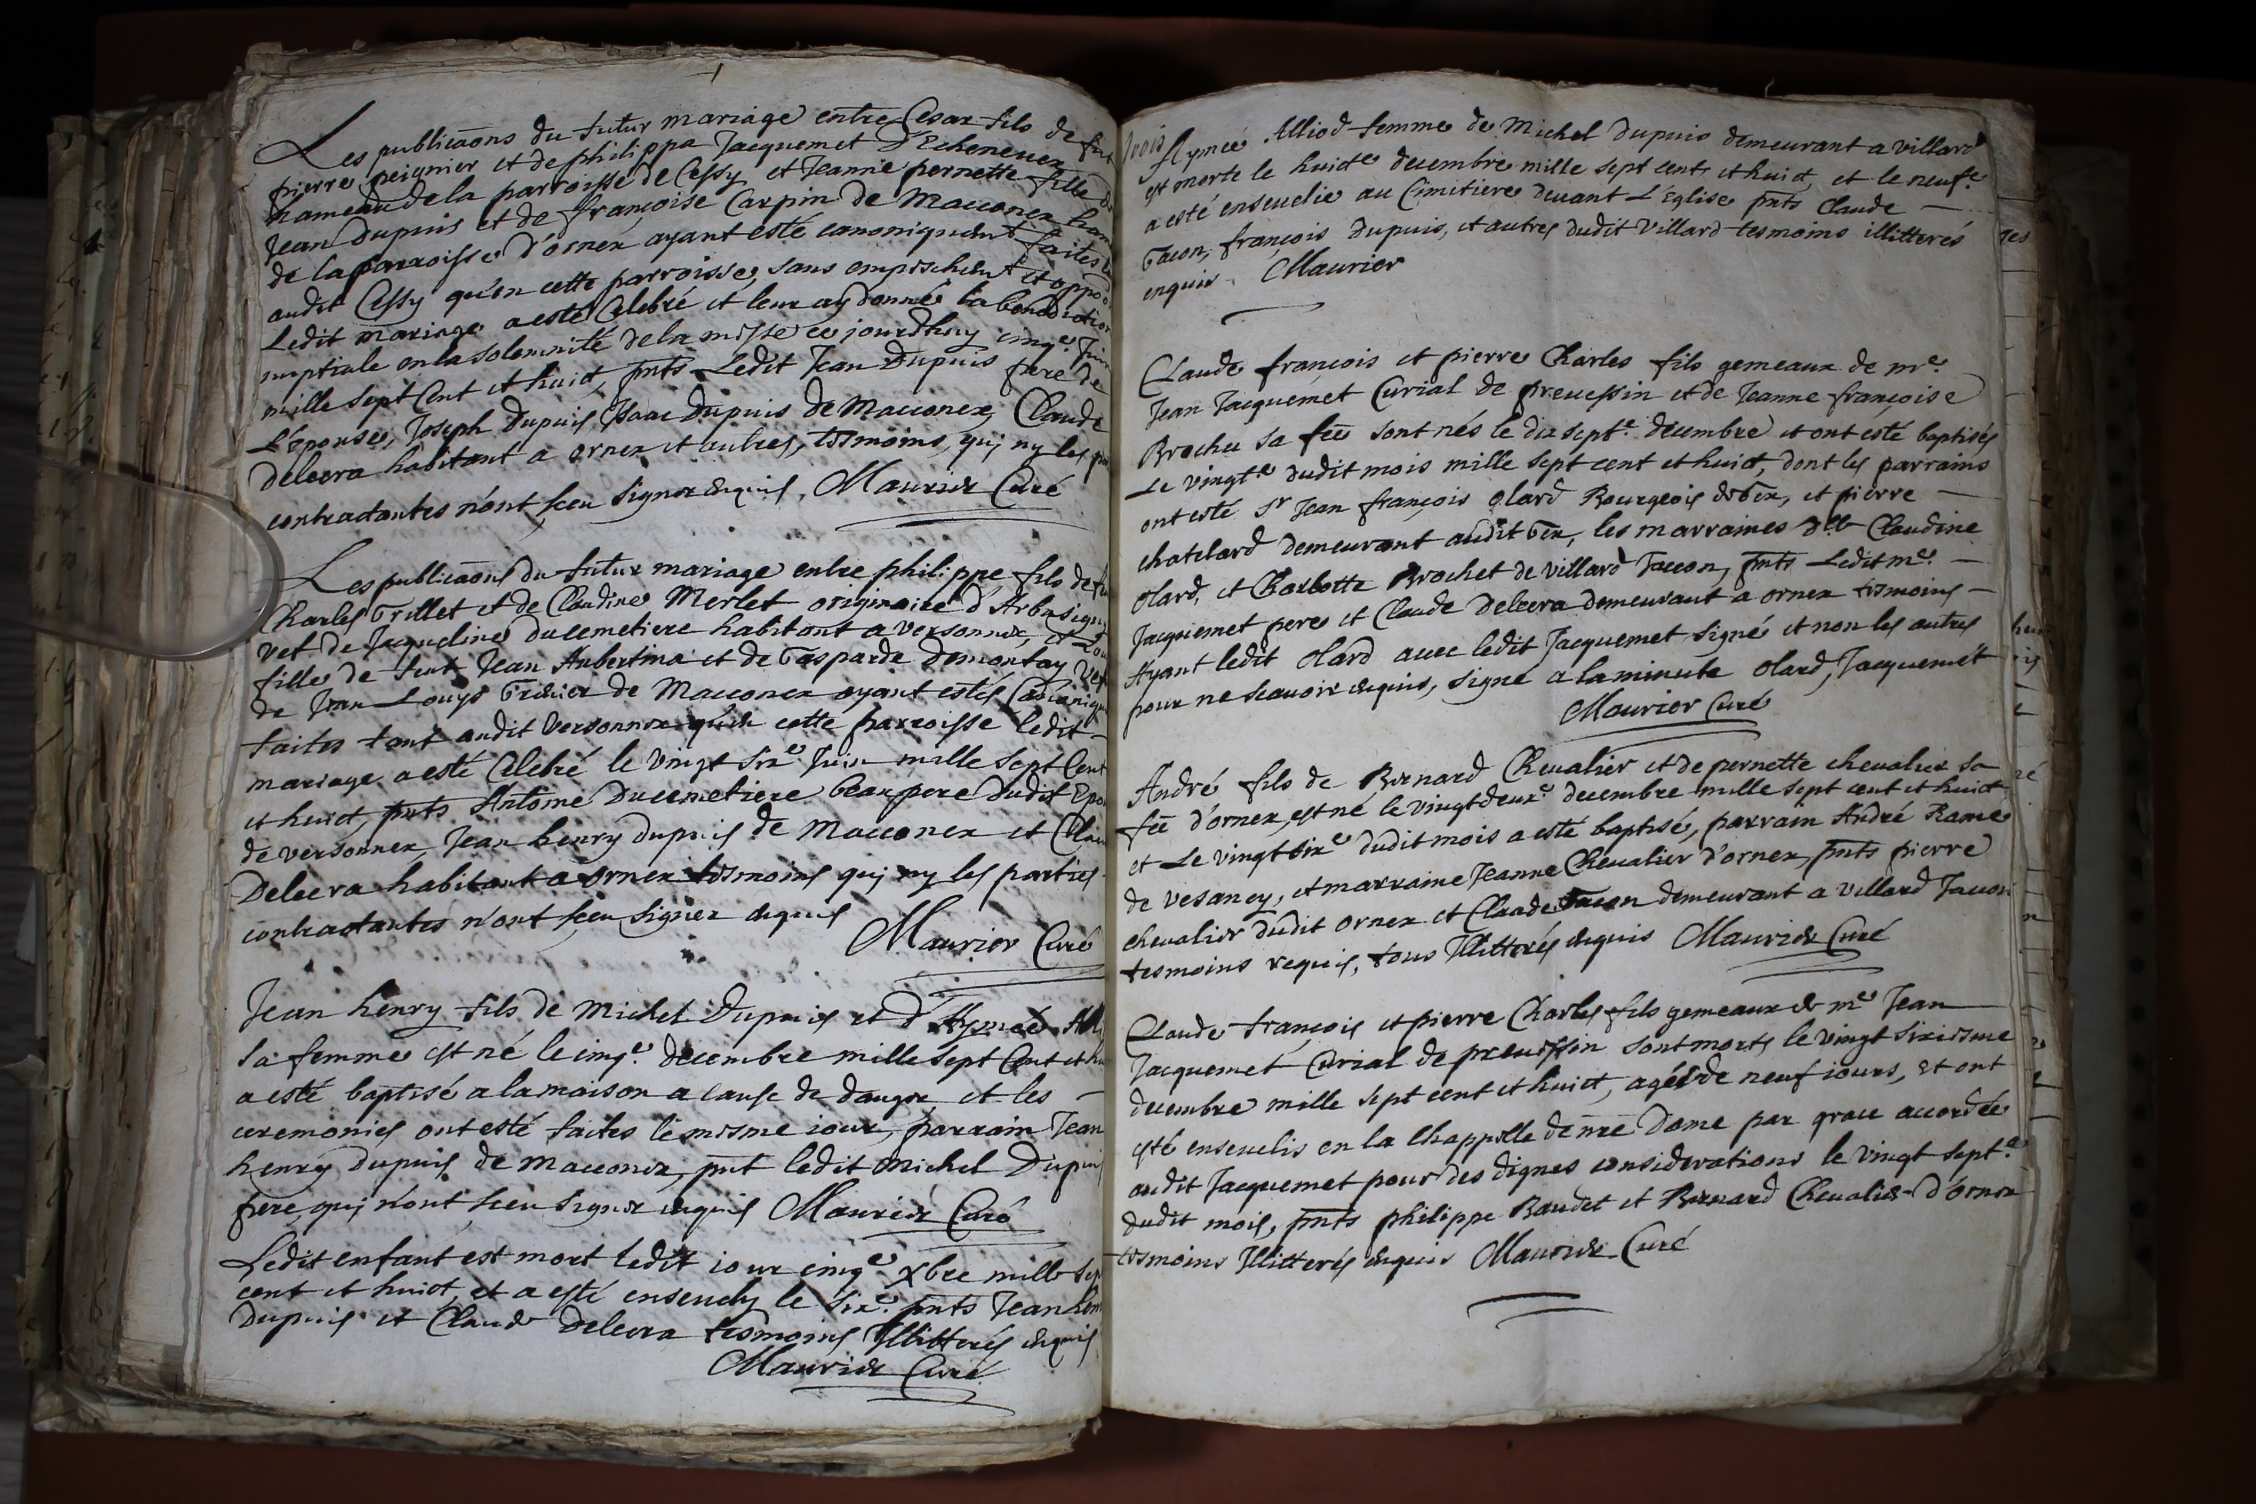 Les publicaons du futur mariage entre Cesar fils de feu
pierre peignier et de philippa Jacquemet D'Echenevex
hameau de la parroisse de Cessy et Jeanne pernette fille de
Jean Dupuis et de françoise Carpin de Macconex ham
de la parroisse d'ornex ayant esté canoniquemt faites
audit Cessy qu'en cette parroisse, sans empeschemt et oppo
Ledit mariage a esté Celebré et leur ay donné la benediction
nuptiale en la solemnité de la messe ce jourdhuy cinqe Juin
mille sept Cent et huict, pnts Ledit Jean Dupuis pere de
L'épouse, Joseph Dupuis, Isaac Dupuis de Macconex, Claude
Delecra habitant a ornex et autres, tesmoins, qui ny les p
contractantes n'ont sceu signer enquis. Maurier Curé
Les publicaons du futur mariage entre philippe fils de fu
Charles Grillet et de Claudine Merlet originaire d'Arbusigny
vef de Jacqueline Ducemetiere habitant a versonnex, et Lou
fille de feut Jean Aubertina et de Gasparde Domontay vef
de Jean Louys de Macconex ayant estés Canoniqu
faites tant audit versonnex qu'en cette parroisse ledit
mariage a esté Celebré le vingt sixe Juin mille sept Cent
et huict, pnts Antoine Ducemetiere beaupere dudit Epou
de versonnex, Jean henry dupuis de Macconex et Clau
Delecra habitant a ornex tesmoins qui ny les parties
contractantes n'ont sceu signer enquis
Maurier Curé
Jean henry fils de Michel Dupuis et d'Aymée All
sa femme est né le cinqe decembre mille sept Cent et hu
a esté baptisé a la maison a cause de danger et les
ceremonies ont esté faites le mesme iour, parrain Jean
henry dupuis de Macconex, pnt ledit Michel Dupui
pere, qui n'ont sceu signer enquis Maurier Curé
Ledit enfant est mort ledit iour cinqe xbre mille sep
cent et huict, et a esté ensevely le sixe pnts Jean hen
Dupuis et Claude Delecra tesmoins Illitterés enquis
Maurier Curé
Aymée Alliod femme de Michel Dupuis demeurant a villard
est morte le huicte decembre mille sept cents et huict, et le neufe
a esté ensevelie au Cimitiere devant L'Eglise pnts Claude
Tacon, françois Dupuis, et autres dudit Villard tesmoins illitterés
enquis. Maurier
Claude françois et pierre Charles fils gemeaux de me
Jean Jacquemet Curial de prevessin et de Jeanne françoise
Brochu sa fee sont nés le dix septe decembre et ont esté baptisés
Le vingte dudit mois mille sept cent et huict, dont les parrains
ont esté Sr Jean françois olard Bourgeois de Gex, et pierre
chatelard demeurant audit Gex, les marraines dlle Claudine
olard, et Charlotte Brochet de villard Taccon, pnts Ledit me
Jacquemet pere et Claude Delecra demeurant a ornex tesmoins
Ayant ledit olard avec ledit Jacquemet signé et non les autres
pour ne scavoir enquis, signé a la minute olard, Jacquemet
Maurier Curé
André fils de Bernard Chevalier et de pernette chevalier sa
fee d'ornex, est né le vingt deuxe decembre mille sept cent et huict
et Le vingt sixe dudit mois a esté baptisé, parrain André Rame
de vesancy, et marraine Jeanne Chevalier d'ornex, pnts pierre
chevalier dudit ornex et Claude Tacon demeurant a villard Taccon
tesmoins requis, tous Illitterés enquis Maurier Curé
Claude françois et pierre Charles fils gemeaux de me Jean
Jacquemet Curial de prevessin sont morts le vingt sixiesme
decembre mille sept cent et huict, agés de neuf iours, et ont
esté ensevelis en la Chappelle de nre Dame par grace accordée
audit Jacquemet pour des dignes considerations le vingt septe
dudit mois, pnts philippe Baudet et Bernard Chevalier d'ornex
tesmoins Illitterés enquis Maurier Curé